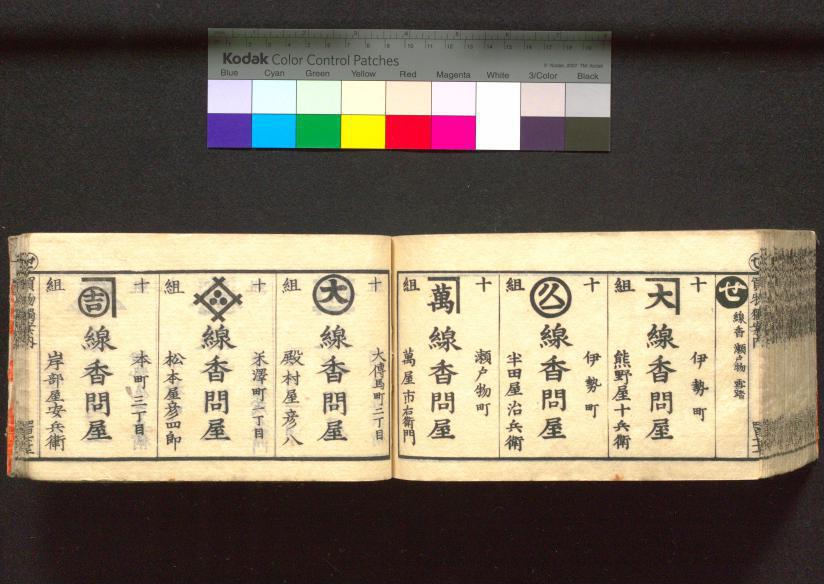 Kodak Color Control Patches
© Kodak, 2007 TM: Kodak
Blue Cyan Green Yellow Red Magenta White 3/Color Black
せ
線香 瀬戸物 雪踏
十組
伊勢町
大
線香問屋
熊野屋十兵衛
十組
伊勢町
線香問屋
半田屋治兵衛
十組
瀬戸物町
萬
線香問屋
萬屋市右衛門
十組
大傳馬町二丁目
大
線香問屋
殿村屋彦八
十組
米澤町二丁目
線香問屋
松本屋彦四郎
十組
本町三丁目
吉
線香問屋
岸部屋安兵衛